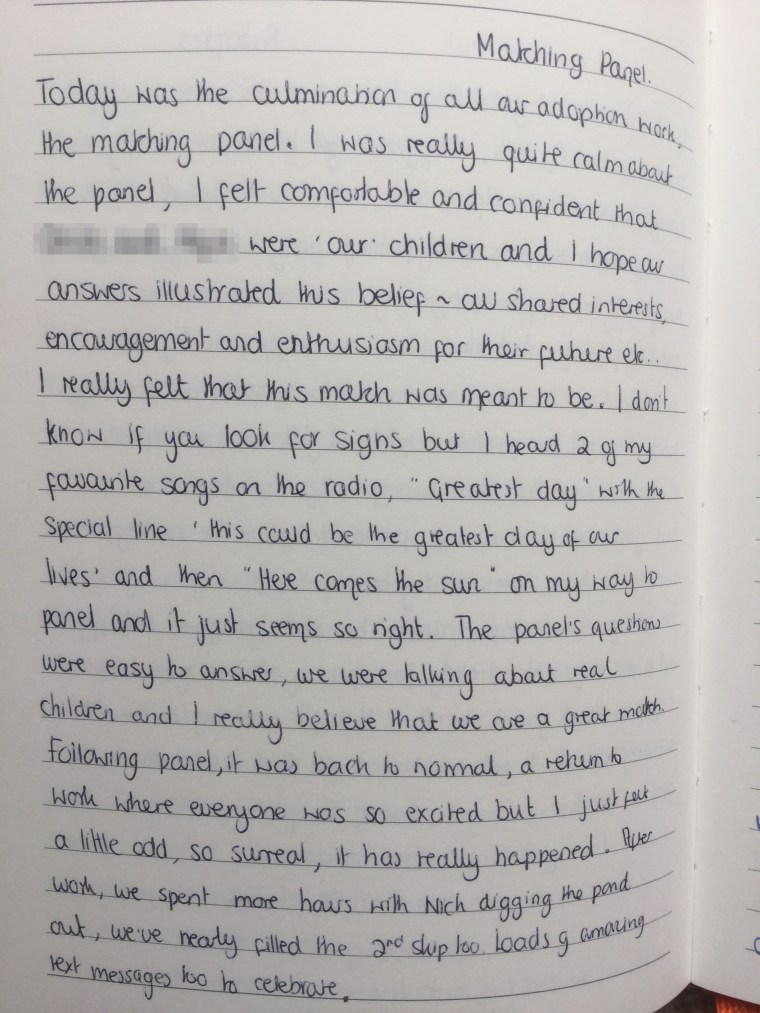 Matching Panel.
Today was the culmination of all our adoption work,
the matching panel. I was really quite calm about
the panel, I felt comfortable and confident that
were 'our' children and I hope our
answers illustrated this belief ~ our shared interests,
encouragement and enthusiasm for their future etc..
I really felt that this match was meant to be. I don't
know if you look for signs but I heard 2 of my
favourite songs on the radio, "Greatest day" with the
special line 'this could be the greatest day of our
lives' and then "Here comes the sun" on my way to
panel and it just seems so right. The panel's questions
were easy to answer, we were talking about real
children and I really believe that we are a great match.
Following panel, it was back to normal, a return to
work where everyone was so excited but I just felt
a little odd, so surreal, it has really happened. After
work, we spent more hours with Nich digging the pond
out, we've nearly filled the 2nd skip too. Loads of amazing
text messages too to celebrate.